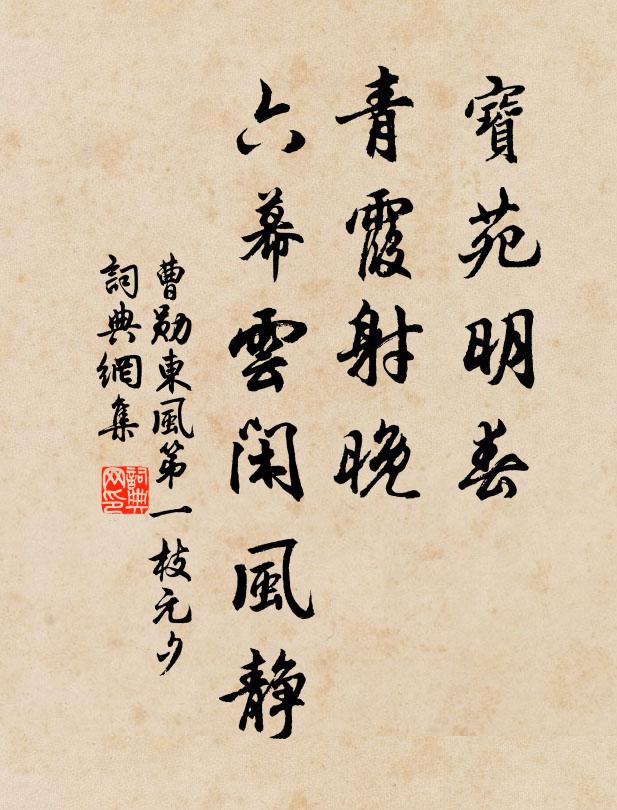 寶苑明春
青霞射晚
六幕雲閑風靜
曹勛東風第一枝元夕
詞典網集
詞典网印